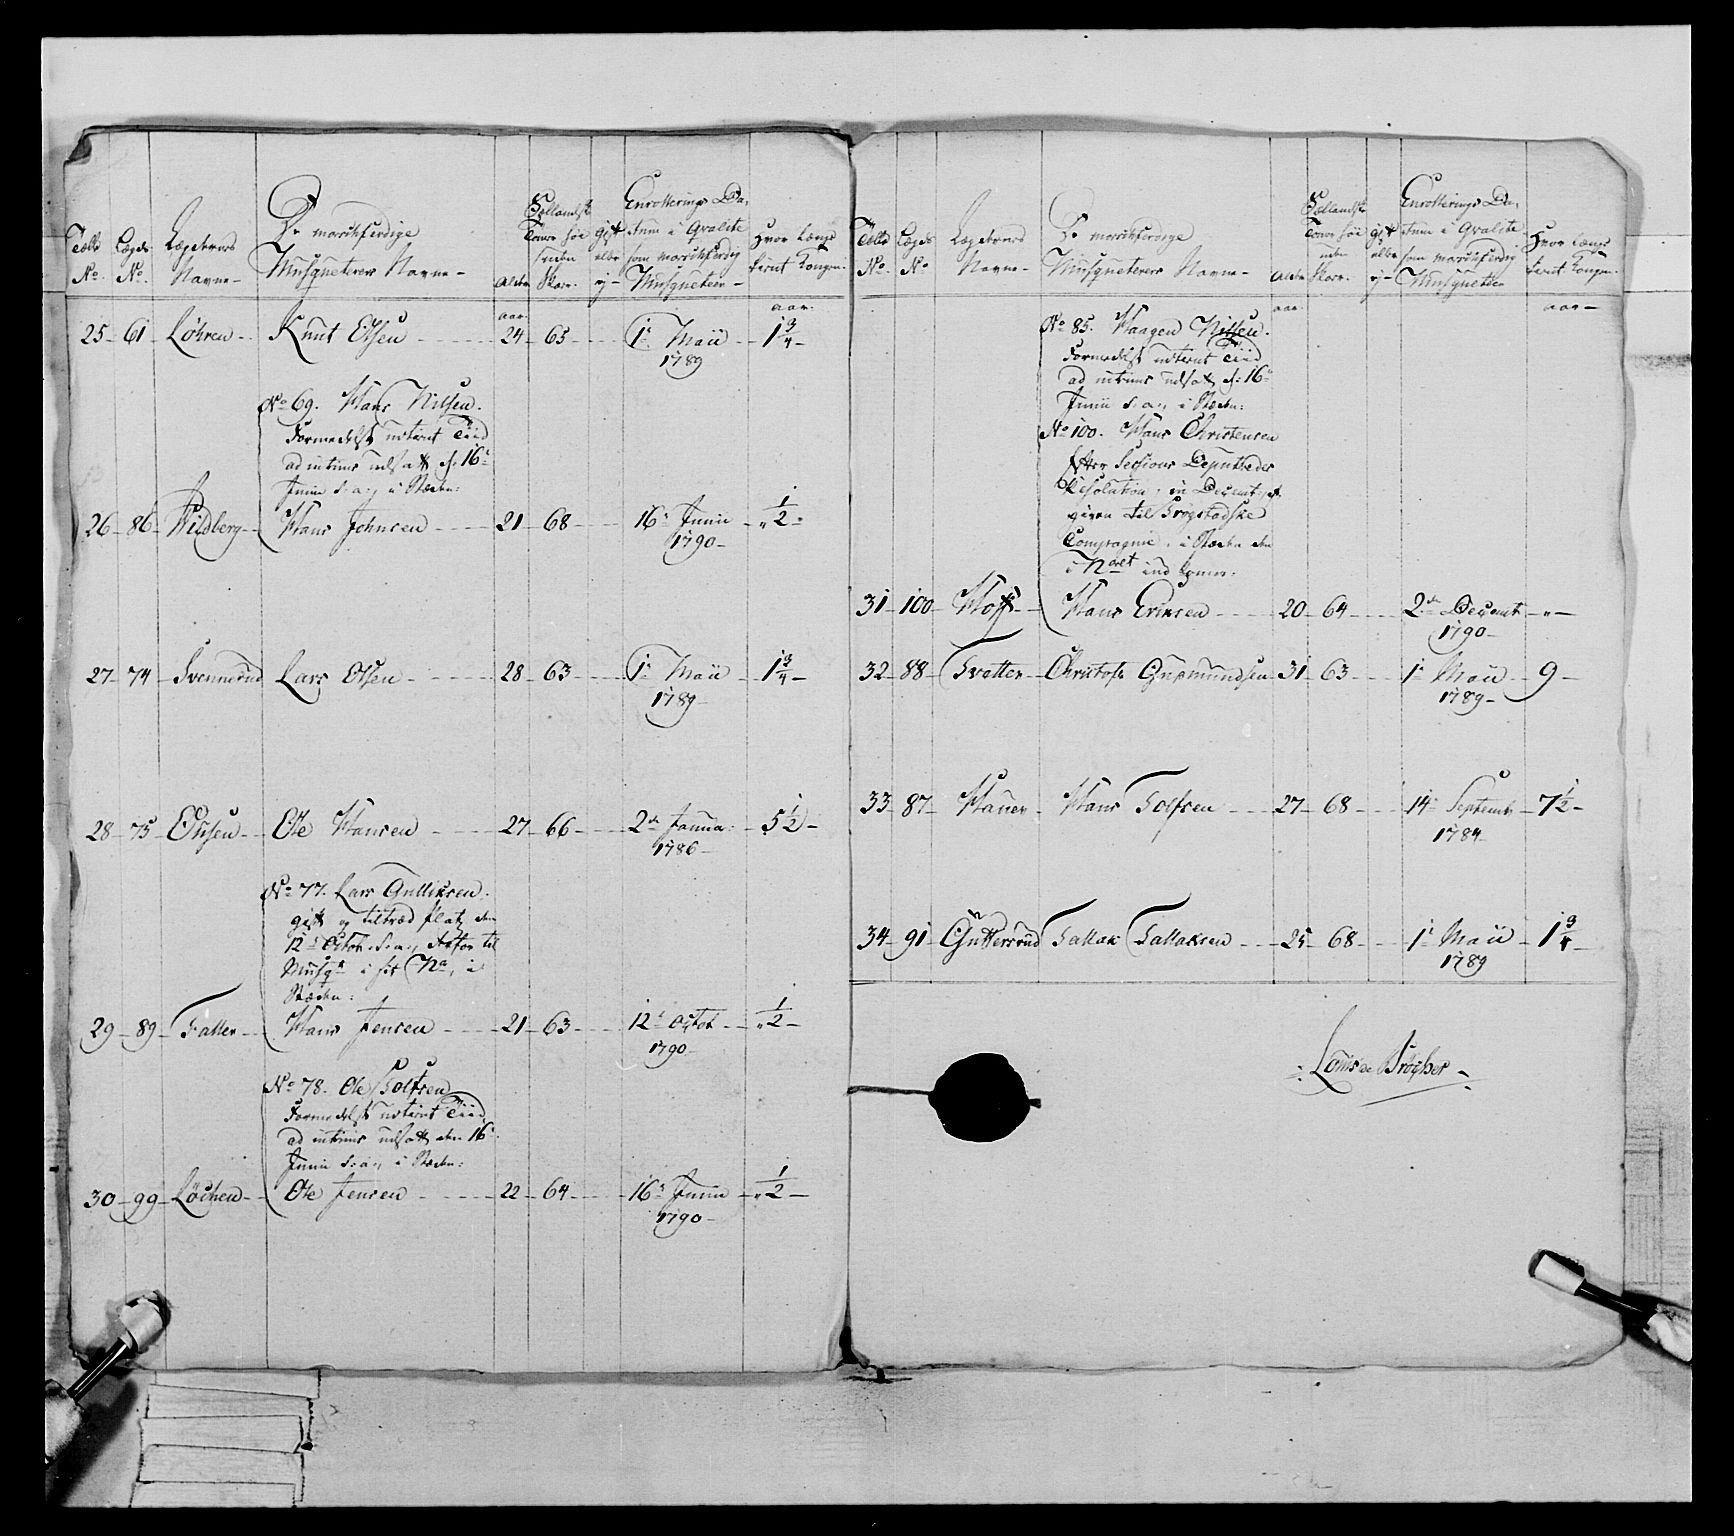 Tællte No.
Lægds No.
Lægdernes Navne-
De marschferdige Musqueterers Navne-
Alder
Sællandsk Tomr høi uden Skoe-
Gift eller ej-
Enrollerings Datum i Qvalite som marschferdig Musqueteer-
Hvor længe tient Kongen.
aar.
aar.
25- 61 Löhren- Knut Olsen 24- 65 1te Maii 1 3/4-
1789
No 69. Hans Nilsen.
Formedelst udtient Tiid
ad intrims udsatt d: 16de
Junii d: a:, i Stæden:
26- 86 Wildberg- Hans Johnsen 21- 68 16de Junii - „ 1/2 -
1790-
27- 74- Svennerud Lars Olsen 28- 63 1te Maii 1 3/4-
1789-
28- 75- Olssen- Ole Hansen 27- 66 2den Janua: 5 1/2-
1786-
No 77. Lars Gulliksen.
gift og tiltræd Platz den
12te Octob: d: a:, derfor til
Musqt i sit No, i
Stæden:
29- 89- Falter- Hans Jensen 21- 63 12te Octob - „ 1/2-
1790-
No 78. Ole Tolfsen
Formedelst udtient Tiid
ad intrims udsatt den 16de
Junii d: a:, i Stæden:
30- 99- Löchen- Ole Jensen 22- 64 16de Junii - „ 1/2-
1790-
Tællte No.
Lægds No
Lægdernes Navne-
De marschferdige Musqueterers Navne-
Alder
Sællandsk Tomr høi uden Skoe.
Gift eller ej-
Enrollerings Datum i Qvalite som marschferdig Musqueteer
Hvor længe tient Kongen.
aar.
aar-
No 85. Haagen Nilsen.
Formedelst udtient Tiid
ad intrims udsatt d: 16de
Junii d: a:, i Stæden:
No 100. Hans Christensen
Efter Sessions Deputerede
Resolution, in Decemb:, af-
given til Trøgstadske
Compagnie, i Stæden den
i Noret ind kommer:
31- 100- Hoff- Hans Eriksen 20- 64 2den Decemb -„-
1790-
32- 88- Tvetter- Christofr Gudmundsen 31- 63 1te Maii 9-
1789-
33- 87- Hauer- Hans Tolfsen 27- 68 14de Septemb 7 1/2-
1784-
34- 91- Guttersrud Tallak Tallaksen 25- 68 1te Maii 1 3/4-
1789